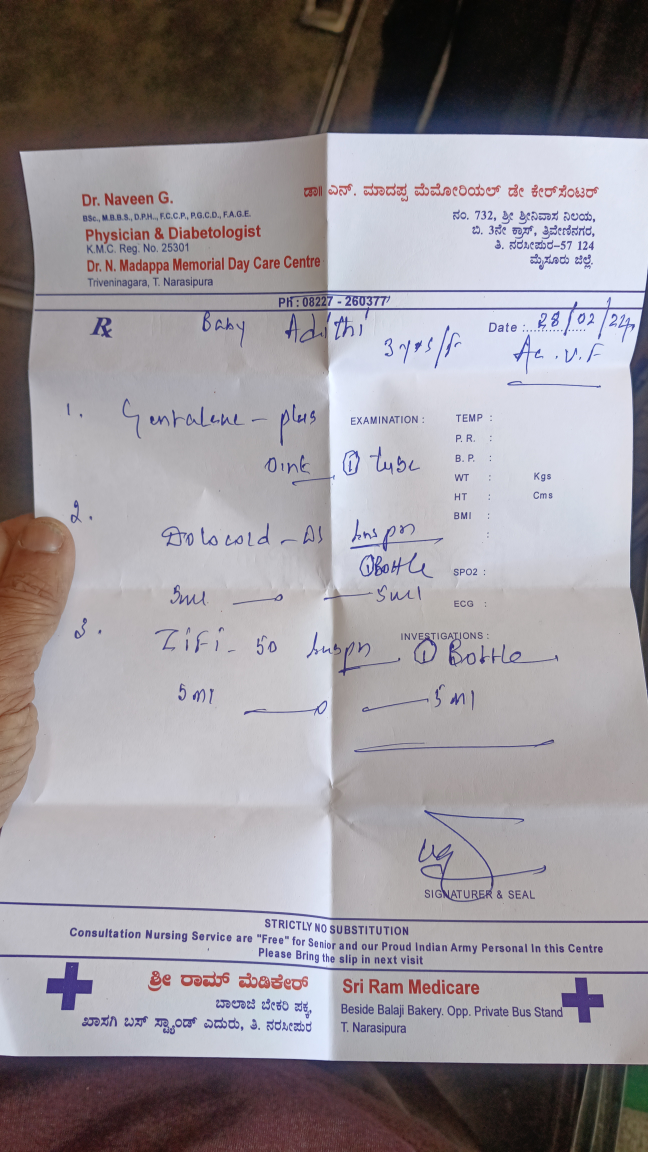 Dr. Naveen G.
BSc., M.B.B.S., D.P.H., F.C.C.P., P.G.C.D., F.A.G.E.
Physician & Diabetologist
K.M.C. Reg. No. 25301
Dr. N. Madappa Memorial Day Care Centre
Triveninagara, T. Narasipura
ಡಾ|| ಎನ್. ಮಾದಪ್ಪ ಮೆಮೋರಿಯಲ್ ಡೇ ಕೇರ್‌ಸೆಂಟರ್
ನಂ. 732, ಶ್ರೀ ಶ್ರೀನಿವಾಸ ನಿಲಯ,
ಬಿ. 3ನೇ ಕ್ರಾಸ್, ತ್ರಿವೇಣಿನಗರ,
ತಿ. ನರಸೀಪುರ-57 124
ಮೈಸೂರು ಜಿಲ್ಲೆ.
PH : 08227 - 260377
Rx Baby Adithi 3 yrs/F
Date : 28/02/24
Ac. U. F
1. Gentalene - plus
oint ① tube
EXAMINATION :
TEMP :
P. R. :
B. P. :
WT : Kgs
HT : Cms
BMI :
:
SPO2 :
ECG :
2. Dolocold - DS Suspn
① Bottle
5ml — o — 5ml
INVESTIGATIONS :
3. ZiFi - 50 Suspn ① Bottle
5ml — o — 5ml
SIGNATURER & SEAL
STRICTLY NO SUBSTITUTION
Consultation Nursing Service are "Free" for Senior and our Proud Indian Army Personal In this Centre
Please Bring the slip in next visit
ಶ್ರೀ ರಾಮ್ ಮೆಡಿಕೇರ್
ಬಾಲಾಜಿ ಬೇಕರಿ ಪಕ್ಕ,
ಖಾಸಗಿ ಬಸ್ ಸ್ಟ್ಯಾಂಡ್ ಎದುರು, ತಿ. ನರಸೀಪುರ
Sri Ram Medicare
Beside Balaji Bakery. Opp. Private Bus Stand
T. Narasipura